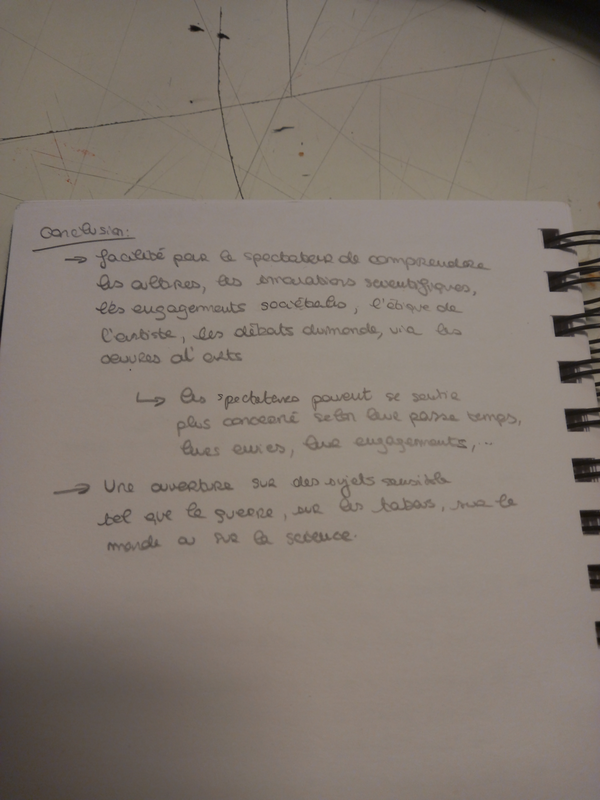 Conclusion:
→ facilité pour le spectateur de comprendre
les cultures, les innovations scientifiques,
les engagements sociétals, l'étique de
l'artiste, les débats du monde, via les
oeuvres d'arts
↳ les spectateurs peuvent se sentir
plus concerné selon leur passe temps,
leurs envies, leur engagements,...
→ Une ouverture sur des sujets sensible
tel que la guerre, sur les tabous, sur le
monde ou sur la science.